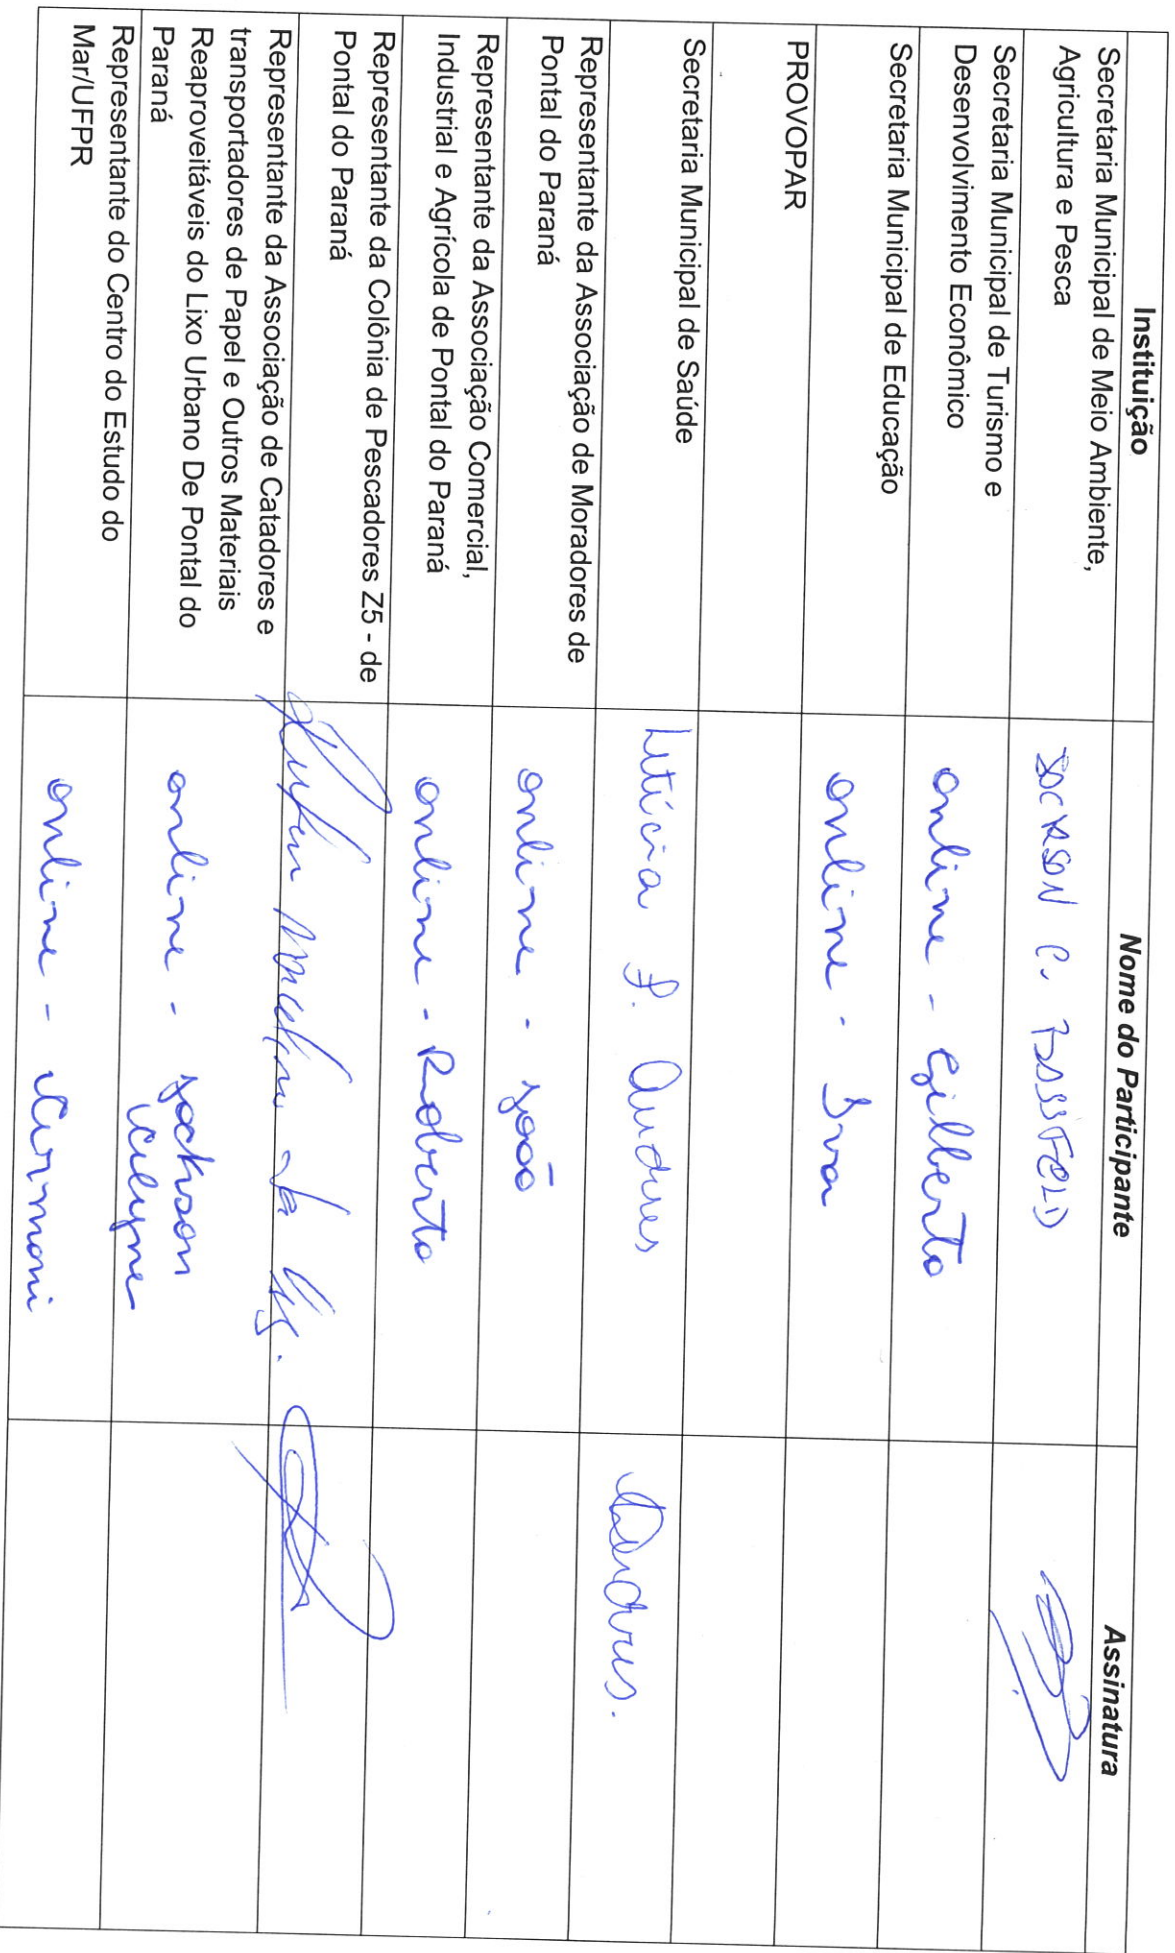 Instituição Nome do Participante Assinatura
Secretaria Municipal de Meio Ambiente,
Agricultura e Pesca
JACKSON C. BASSFELD
Secretaria Municipal de Turismo e
Desenvolvimento Econômico
online - Gilberto
Secretaria Municipal de Educação
online - Iva
PROVOPAR
Secretaria Municipal de Saúde
Letícia F. Andres
Representante da Associação de Moradores de
Pontal do Paraná
online - João
Representante da Associação Comercial,
Industrial e Agrícola de Pontal do Paraná
online - Roberto
Representante da Colônia de Pescadores Z5 - de
Pontal do Paraná
Representante da Associação de Catadores e
transportadores de Papel e Outros Materiais
Reaproveitáveis do Lixo Urbano De Pontal do
Paraná
online - Jackson
Representante do Centro do Estudo do
Mar/UFPR
online -